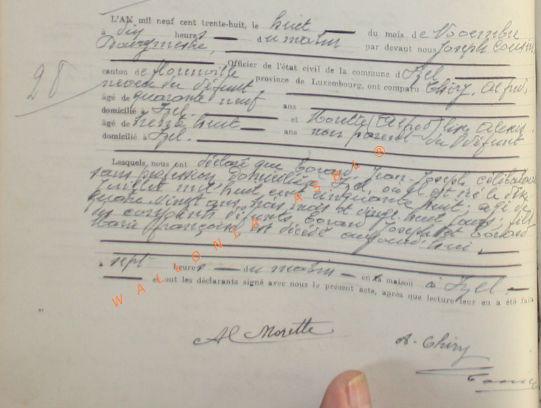 L'AN mil neuf cent trente-huit, le huit du mois de Novembre
à dix heures du matin par devant nous Joseph
Bourgmestre, Officier de l'état civil de la commune d'Izel
canton de Florenville province de Luxembourg, ont comparu Thiry, Alfred,
neveu du défunt
28
âgé de quarante neuf ans
domicilié à Izel et Morette (Alfred)
âgé de trente huit ans non parent du défunt
domicilié à Izel.
Lesquels nous ont déclaré que Jean-Joseph, célibataire
sans profession domicilié à Izel, où il est né le
juillet mil huit cent cinquante huit, âgé de
quatre vingt ans, trois mois et vingt huit jours, fils
des conjoints défunts, Joseph et
Marie Françoise est décédé aujourd'hui,
à sept heures du matin en sa maison à Izel
et ont les déclarants signé avec nous le présent acte, après que lecture leur eu a été faite
Al Morette
A. Thiry
WALLONIA ASBL ®